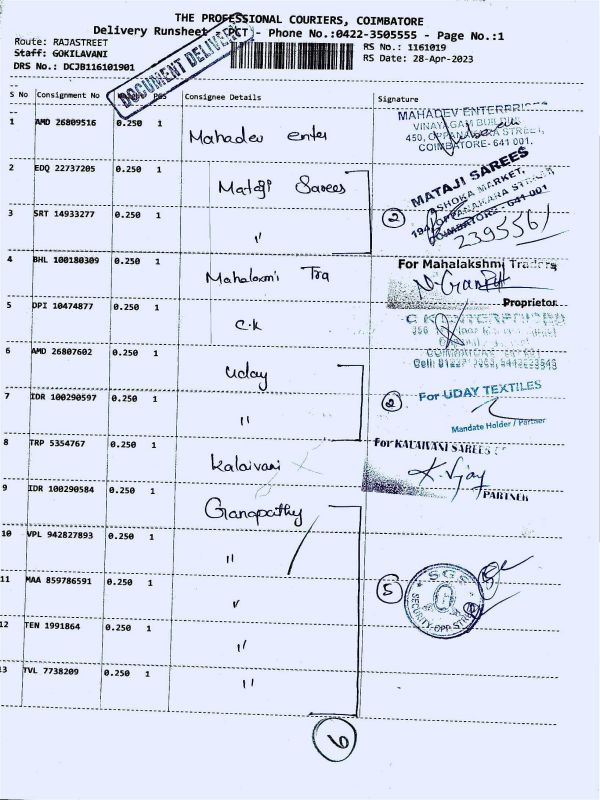 THE PROFESSIONAL COURIERS, COIMBATORE
Delivery Runsheet (PCT) - Phone No.:0422-3505555 - Page No.:1
Route: RAJASTREET
RS No.: 1161019
Staff: GOKILAVANI
RS Date: 28-Apr-2023
DRS No.: DCJB116101901
DOCUMENT DELIVERY
S No Consignment No PCS Consignee Details Signature
1 AMD 26809516 0.250 1 Mahadev enter
MAHADEV ENTERPRISES
VINAYAGAM BUILDING
450, OPPANAKARA STREET,
COIMBATORE- 641 001.
2 EDQ 22737205 0.250 1 Mataji Sarees
MATAJI SAREES
ASHOKA MARKET,
194, OPPANAKARA STREET
COIMBATORE - 641 001
2
2395561
3 SRT 14933277 0.250 1 "
4 BHL 100180309 0.250 1 Mahalaxmi Tra
For Mahalakshmi Traders
Proprietor
5 DPI 10474877 0.250 1 C.K
C K ENTERPRISES
COIMBATORE
6 AMD 26807602 0.250 1 Uday
7 IDR 100290597 0.250 1 "
2
For UDAY TEXTILES
Mandate Holder / Partner
8 TRP 5354767 0.250 1 Kalaivani
For KALAIVANI SAREES
K. Vijay
PARTNER
9 IDR 100290584 0.250 1 Ganapathy
10 VPL 942827893 0.250 1 "
11 MAA 859786591 0.250 1 "
5
S.G.S
SECURITY-OPP STREET
12 TEN 1991864 0.250 1 "
13 TVL 7738209 0.250 1 "
6